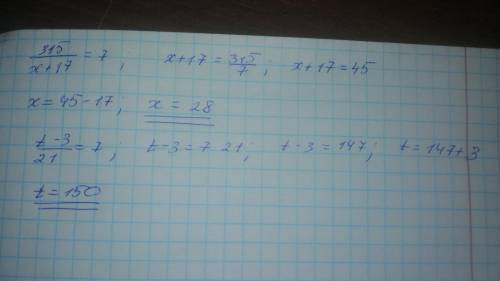 315/x+17 = 7 ; x+17 = 315/7 ; x+17 = 45
x = 45-17 ; x = 28
t-3/21 = 7 ; t-3 = 7 21 ; t-3 = 147 ; t = 147+3
t = 150